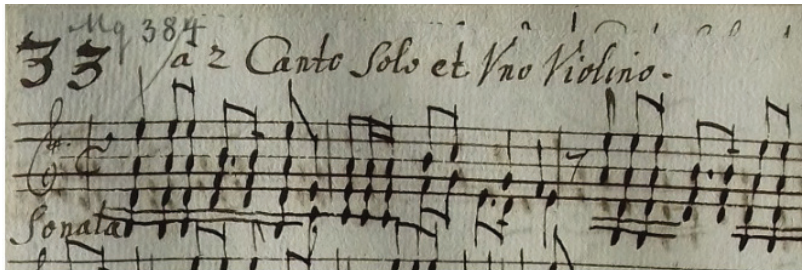 Mq 384
33 a 2 Canto Solo et Vno Violino.
Sonata